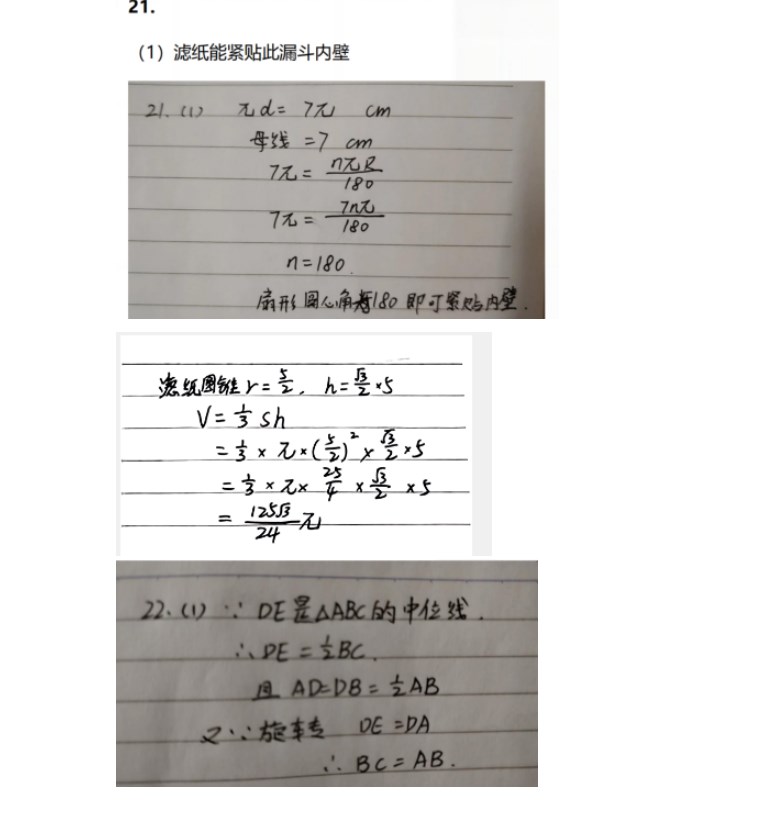 21.
(1) 滤纸能紧贴此漏斗内壁
21. (1) πd = 7π cm
母线 = 7 cm
7π = nπR/180
7π = 7nπ/180
n = 180.
扇形圆心角为180即可紧贴内壁.
滤纸圆锥 r = 5/2, h = √3/2 × 5
V = 1/3 sh
= 1/3 × π × (5/2)² × √3/2 × 5
= 1/3 × π × 25/4 × √3/2 × 5
= 125√3/24 π
22. (1) ∵ DE是△ABC的中位线.
∴ DE = 1/2 BC.
且 AD=DB = 1/2 AB
又∵旋转 DE = DA
∴ BC = AB.